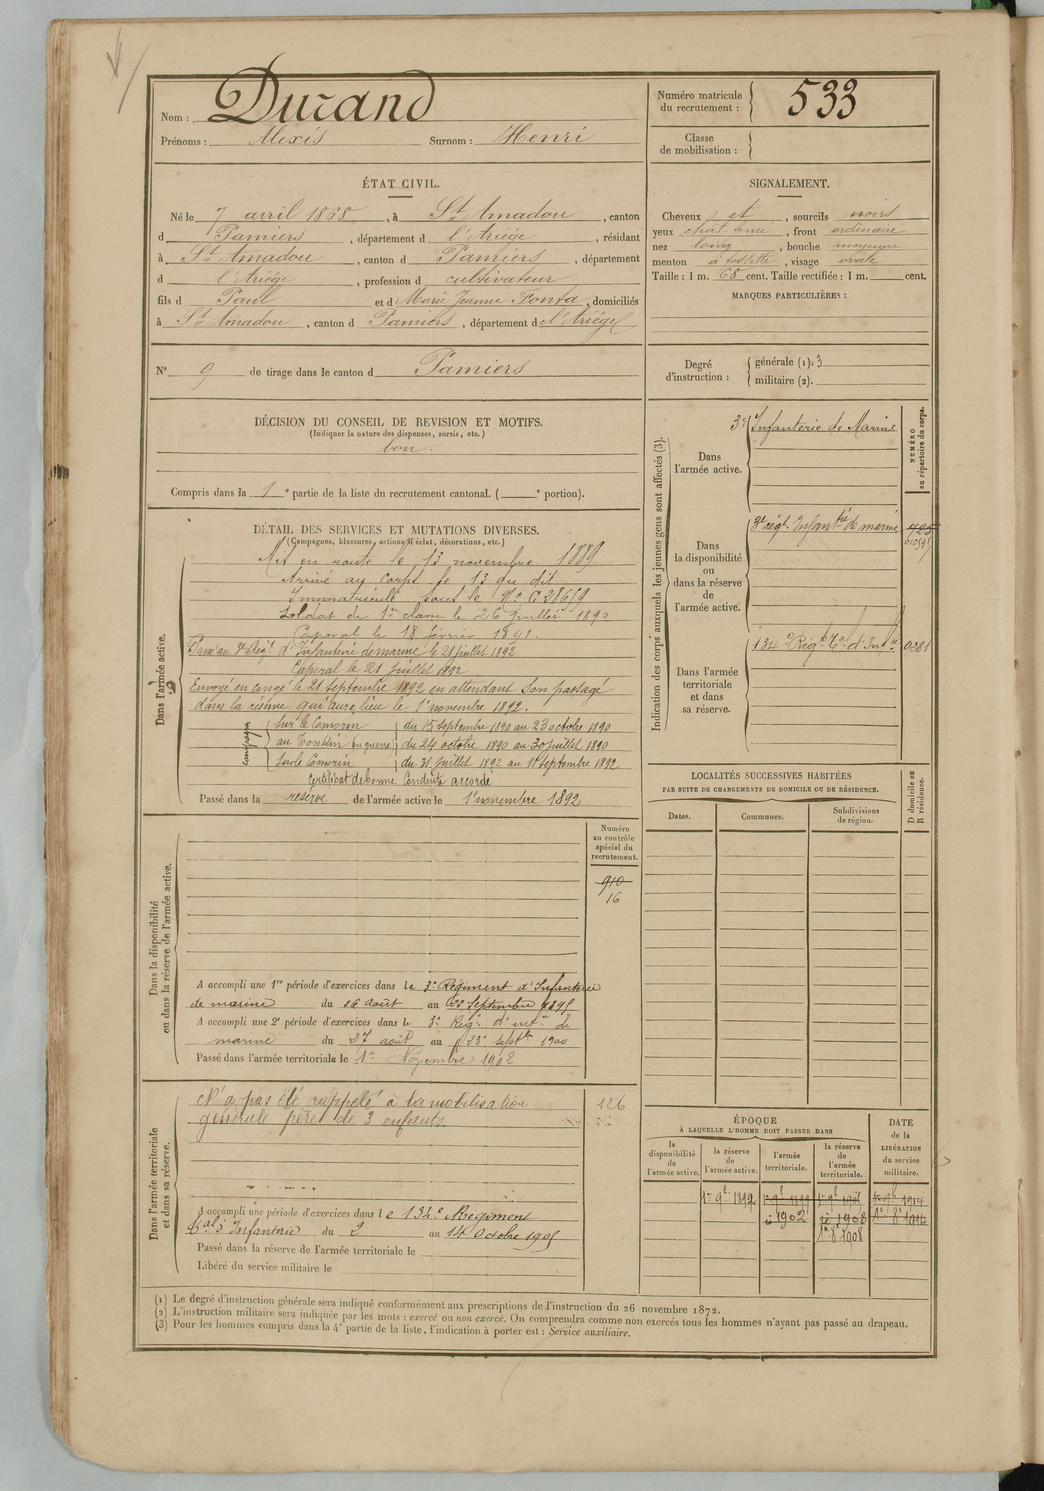 Nom : Durand
Prénoms : Alexis Surnom : Henri
ÉTAT CIVIL.
Né le 7 avril 1868, à St Amadou, canton
d Pamiers, département d l'Ariége, résidant
à St Amadou, canton d Pamiers, département
d l'Ariége, profession d cultivateur
fils d Paul et d Marie Jeanne Fonta, domiciliés
à St Amadou, canton d Pamiers, département d l'Ariége
N° 9 de tirage dans le canton d Pamiers
DÉCISION DU CONSEIL DE REVISION ET MOTIFS.
(Indiquer la nature des dispenses, sursis, etc.)
bon.
Compris dans la 1e partie de la liste du recrutement cantonal. ( e portion).
DÉTAIL DES SERVICES ET MUTATIONS DIVERSES.
(Campagnes, blessures, actions d'éclat, décorations, etc.)
Dans l'armée active.
Mis en route le 13 novembre 1889
Arrivé au corps le 13 du dit
Immatriculé sous le No C 21619
Soldat de 1re classe le 26 juillet 1890
Caporal le 18 février 1891.
Passé au 3e Régt d'Infanterie de marine le 21 juillet 1892
Caporal le 21 juillet 1892
Envoyé en congé le 21 septembre 1892 en attendant son passage
dans la réserve qui aura lieu le 1er novembre 1892.
Campagnes
Sur le Comorin du 15 septembre 1890 au 23 octobre 1890
au Tonkin en guerre du 24 octobre 1890 au 30 juillet 1890
Sur le Comorin du 31 juillet 1892 au 1er septembre 1892
Certificat de bonne Conduite accordé
Passé dans la réserve de l'armée active le 1er novembre 1892
Dans la disponibilité
ou dans la réserve de l'armée active.
Numéro
au contrôle
spécial du
recrutement.
910
16
A accompli une 1re période d'exercices dans le 3e Régiment d'Infanterie
de marine du 26 août au 22 septembre 1895
A accompli une 2e période d'exercices dans le 3e Régt d'inf ie de
marine du 27 août au 23 septbre 1900
Passé dans l'armée territoriale le 1er Novembre 1902
Dans l'armée territoriale
et dans sa réserve.
N'a pas été rappelé à la mobilisation
générale père de 3 enfants
126
A accompli une période d'exercices dans le 134e Régiment
tal d'Infanterie du 2 au 14 Octobre 1905
Passé dans la réserve de l'armée territoriale le
Libéré du service militaire le
Numéro matricule
du recrutement : 533
Classe
de mobilisation :
SIGNALEMENT.
Cheveux et, sourcils noirs
yeux chat. foncé, front ordinaire
nez long, bouche moyenne
menton à fossette, visage ovale
Taille : 1 m. 68 cent. Taille rectifiée : 1 m. cent.
MARQUES PARTICULIÈRES :
Degré
d'instruction :
générale (1). 3
militaire (2).
Indication des corps auxquels les jeunes gens sont affectés (3).
NUMÉRO
au répertoire du corps.
Dans
l'armée active.
3e Infanterie de Marine
Dans
la disponibilité
ou
dans la réserve
de
l'armée active.
3e régt Infanterie de marine
Dans l'armée
territoriale
et dans
sa réserve.
134e Régt tal d'Infie
0281
LOCALITÉS SUCCESSIVES HABITÉES
PAR SUITE DE CHANGEMENTS DE DOMICILE OU DE RÉSIDENCE.
D domicile ou
R résidence.
Dates. Communes. Subdivisions
de région.
ÉPOQUE
À LAQUELLE L'HOMME DOIT PASSER DANS
DATE
de la
LIBÉRATION
du service
militaire.
la
disponibilité
de
l'armée active.
la réserve
de
l'armée active.
l'armée
territoriale.
la réserve
de
l'armée
territoriale.
1er 9bre 1892 1er 9bre 1899 1er 9bre 1905 1er 9bre 1914
1902 1908 1er 8bre 1914
1er 8 1908
(1) Le degré d'instruction générale sera indiqué conformément aux prescriptions de l'instruction du 26 novembre 1872.
(2) L'instruction militaire sera indiquée par les mots : exercé ou non exercé. On comprendra comme non exercés tous les hommes n'ayant pas passé au drapeau.
(3) Pour les hommes compris dans la 4e partie de la liste, l'indication à porter est : Service auxiliaire.